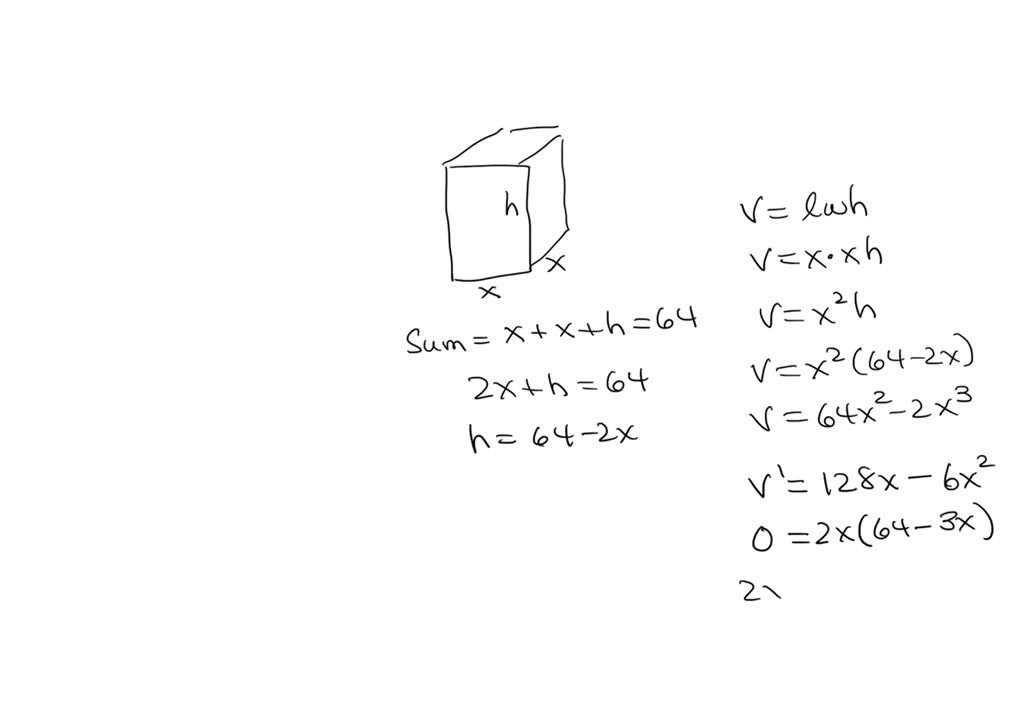 h
x
x
Sum = x + x + h = 64
2x + h = 64
h = 64 - 2x
V = lwh
V = x · x h
V = x²h
V = x²(64 - 2x)
V = 64x² - 2x³
V' = 128x - 6x²
0 = 2x(64 - 3x)